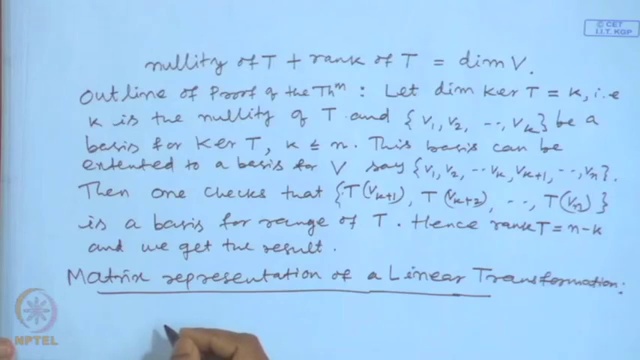 © CET
I.I.T. KGP
nullity of T + rank of T = dim V.
Outline of Proof of the Thm : Let dim Ker T = k, i.e
k is the nullity of T and {v1, v2, ..., vk} be a
basis for Ker T, k ≤ n. This basis can be
extented to a basis for V say {v1, v2, ... vk, vk+1, ..., vn}.
Then one checks that {T(vk+1), T(vk+2), ..., T(vn)}
is a basis for range of T. Hence rank T = n-k
and we get the result.
Matrix representation of a Linear Transformation:
NPTEL